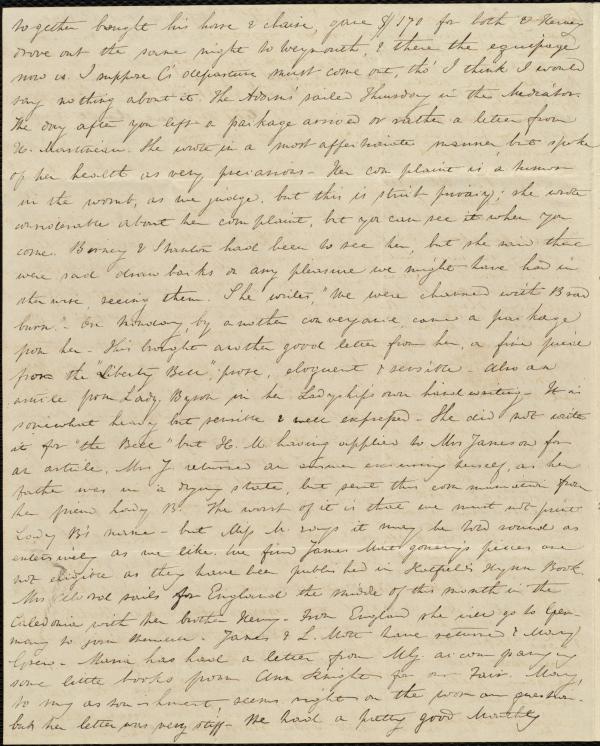 together bought his horse & chaise, gave $170 for both & Henry
drove out the same night to Weymouth, & there the equipage
now is. I suppose C's departure must come out, tho' I think I would
say nothing about it. The Adams' sailed Thursday in the Mediator.
The day after you left a package arrived or rather a letter from
H. Martineau. She wrote in a most affectionate manner, but spoke
of her health as very precarious - Her complaint is a tumor
in the womb, as we judge, but this is strict privacy; she wrote
considerable about her complaint, but you can see it when you
come. Birney & Stanton had been to see her, but she said there
were sad drawbacks on any pleasure we might have had in
otherwise, seeing them. She writes, "We were charmed with Brad
burn." - On Monday, by another conveyance came a package
from her - This brought another good letter from her, a fine piece
from the "Liberty Bell" prose, eloquent & sensible - also an
article from Lady Byron in her Ladyship's own hand writing - It is
somewhat heady but sensible & well expressed - She did not write
it for "the Bell" but H. M. having applied to Mrs Jameson for
an article, Mrs J. returned an answer excusing herself, as her
father was in a dying state, but sent this communication from
her friend Lady B. The worst of it is that we must not print
Lady B's name - but Miss M. says it may be told round as
extensively as we like. We find James Montgomery's pieces are
not eligible as they have been published in Hatfield's Hymn Book.
Mrs sails for England the middle of this month in the
Caledonia with her brother Henry - From England she will go to Ger-
many to join - James & L. Mott have returned & Mary
Grew - Maria has had a letter from M.G. accompanying
some little books from Ann Knight for our Fair. Mary,
to my astonishment, seems right on the woman question -
but her letter was very stiff - We had a pretty good Monthly